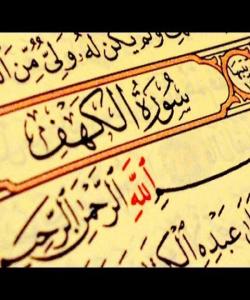 وَلَمْ يَكُن لَّهُ وَلِيٌّ مِّنَ
سُورَةُ الكَهْفِ
اللَّهِ الرَّحْمَٰنِ الرَّحِيمِ
عَبْدِهِ